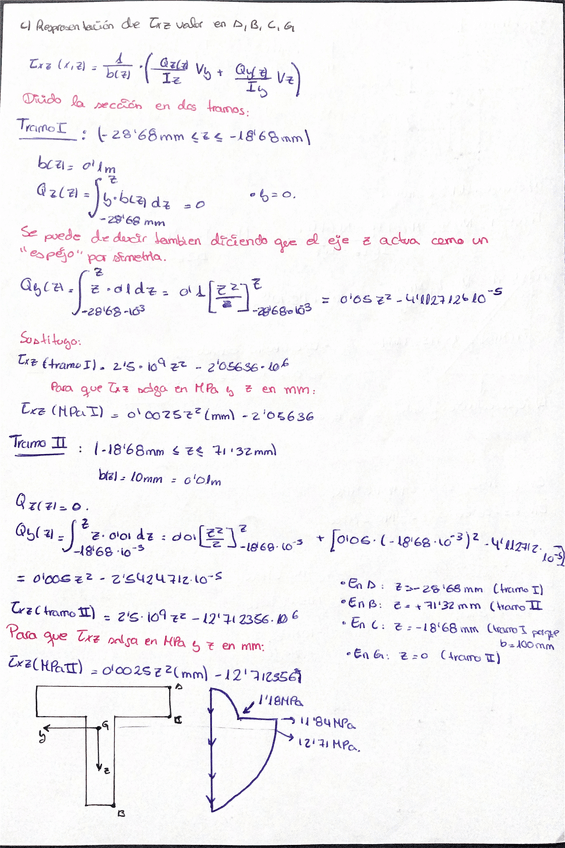 c) Representación de τxz valor en D, B, C, G
τxz (x,z) = 1/b(z) · (Qz(z)/Iz Vy + Qy(z)/Iy Vz)
Divido la sección en dos tramos:
Tramo I : (-28'68 mm ≤ z ≤ -18'68 mm)
b(z) = 0'1m
Qz(z) = ∫_{-28'68 mm}^{z} y·b(z) dz = 0 · y = 0.
Se puede deducir tambien diciendo que el eje z actua como un
"espejo" por simetria.
Qy(z) = ∫_{-28'68·10^-3}^{z} z·0'1 dz = 0'1 [z²/2]_{-28'68·10^-3}^{z} = 0'05z² - 4'112712·10^-5
Sustituyo:
τxz (tramo I) = 2'5·10^9 z² - 2'05636·10^6
Para que τxz salga en MPa y z en mm:
τxz (MPa I) = 0'0025z² (mm) - 2'05636
Tramo II : (-18'68mm ≤ z ≤ 71'32mm)
b(z) = 10mm = 0'01m
Qz(z) = 0.
Qy(z) = ∫_{-18'68·10^-3}^{z} z·0'01 dz = 0'01 [z²/2]_{-18'68·10^-3}^{z} + [0'05·(-18'68·10^-3)² - 4'112712·10^-5]
= 0'005z² - 2'5424712·10^-5
τxz (tramo II) = 2'5·10^9 z² - 12'712356·10^6
Para que τxz salga en MPa y z en mm:
τxz (MPa II) = 0'0025z² (mm) - 12'712356
• En D: z = -28'68 mm (tramo I)
• En B: z = +71'32 mm (tramo II
• En C: z = -18'68 mm (tramo I porque
b = 100mm
• En G: z = 0 (tramo II)
D
C
G
y
z
B
1'18MPa
11'84 MPa
12'71 MPa.